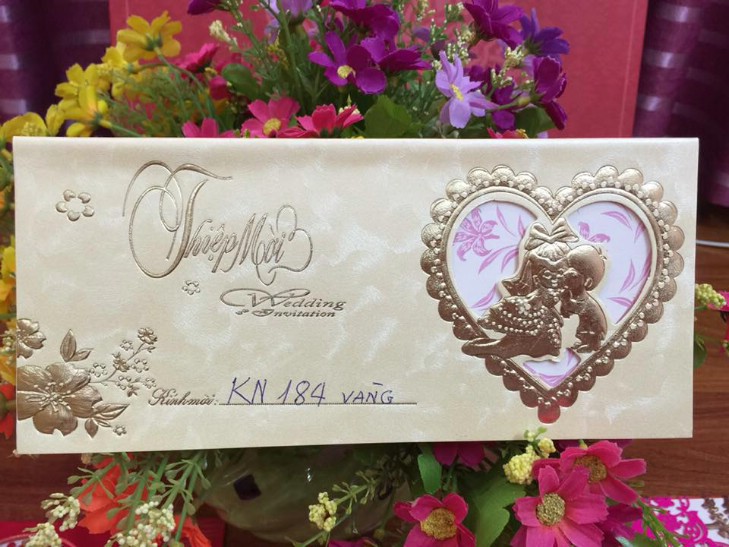 Thiệp Mời
Wedding
Invitation
Kính mời: KN 184 VÀNG